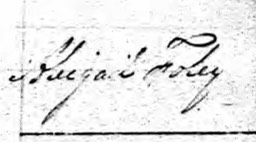 Abigail Foley